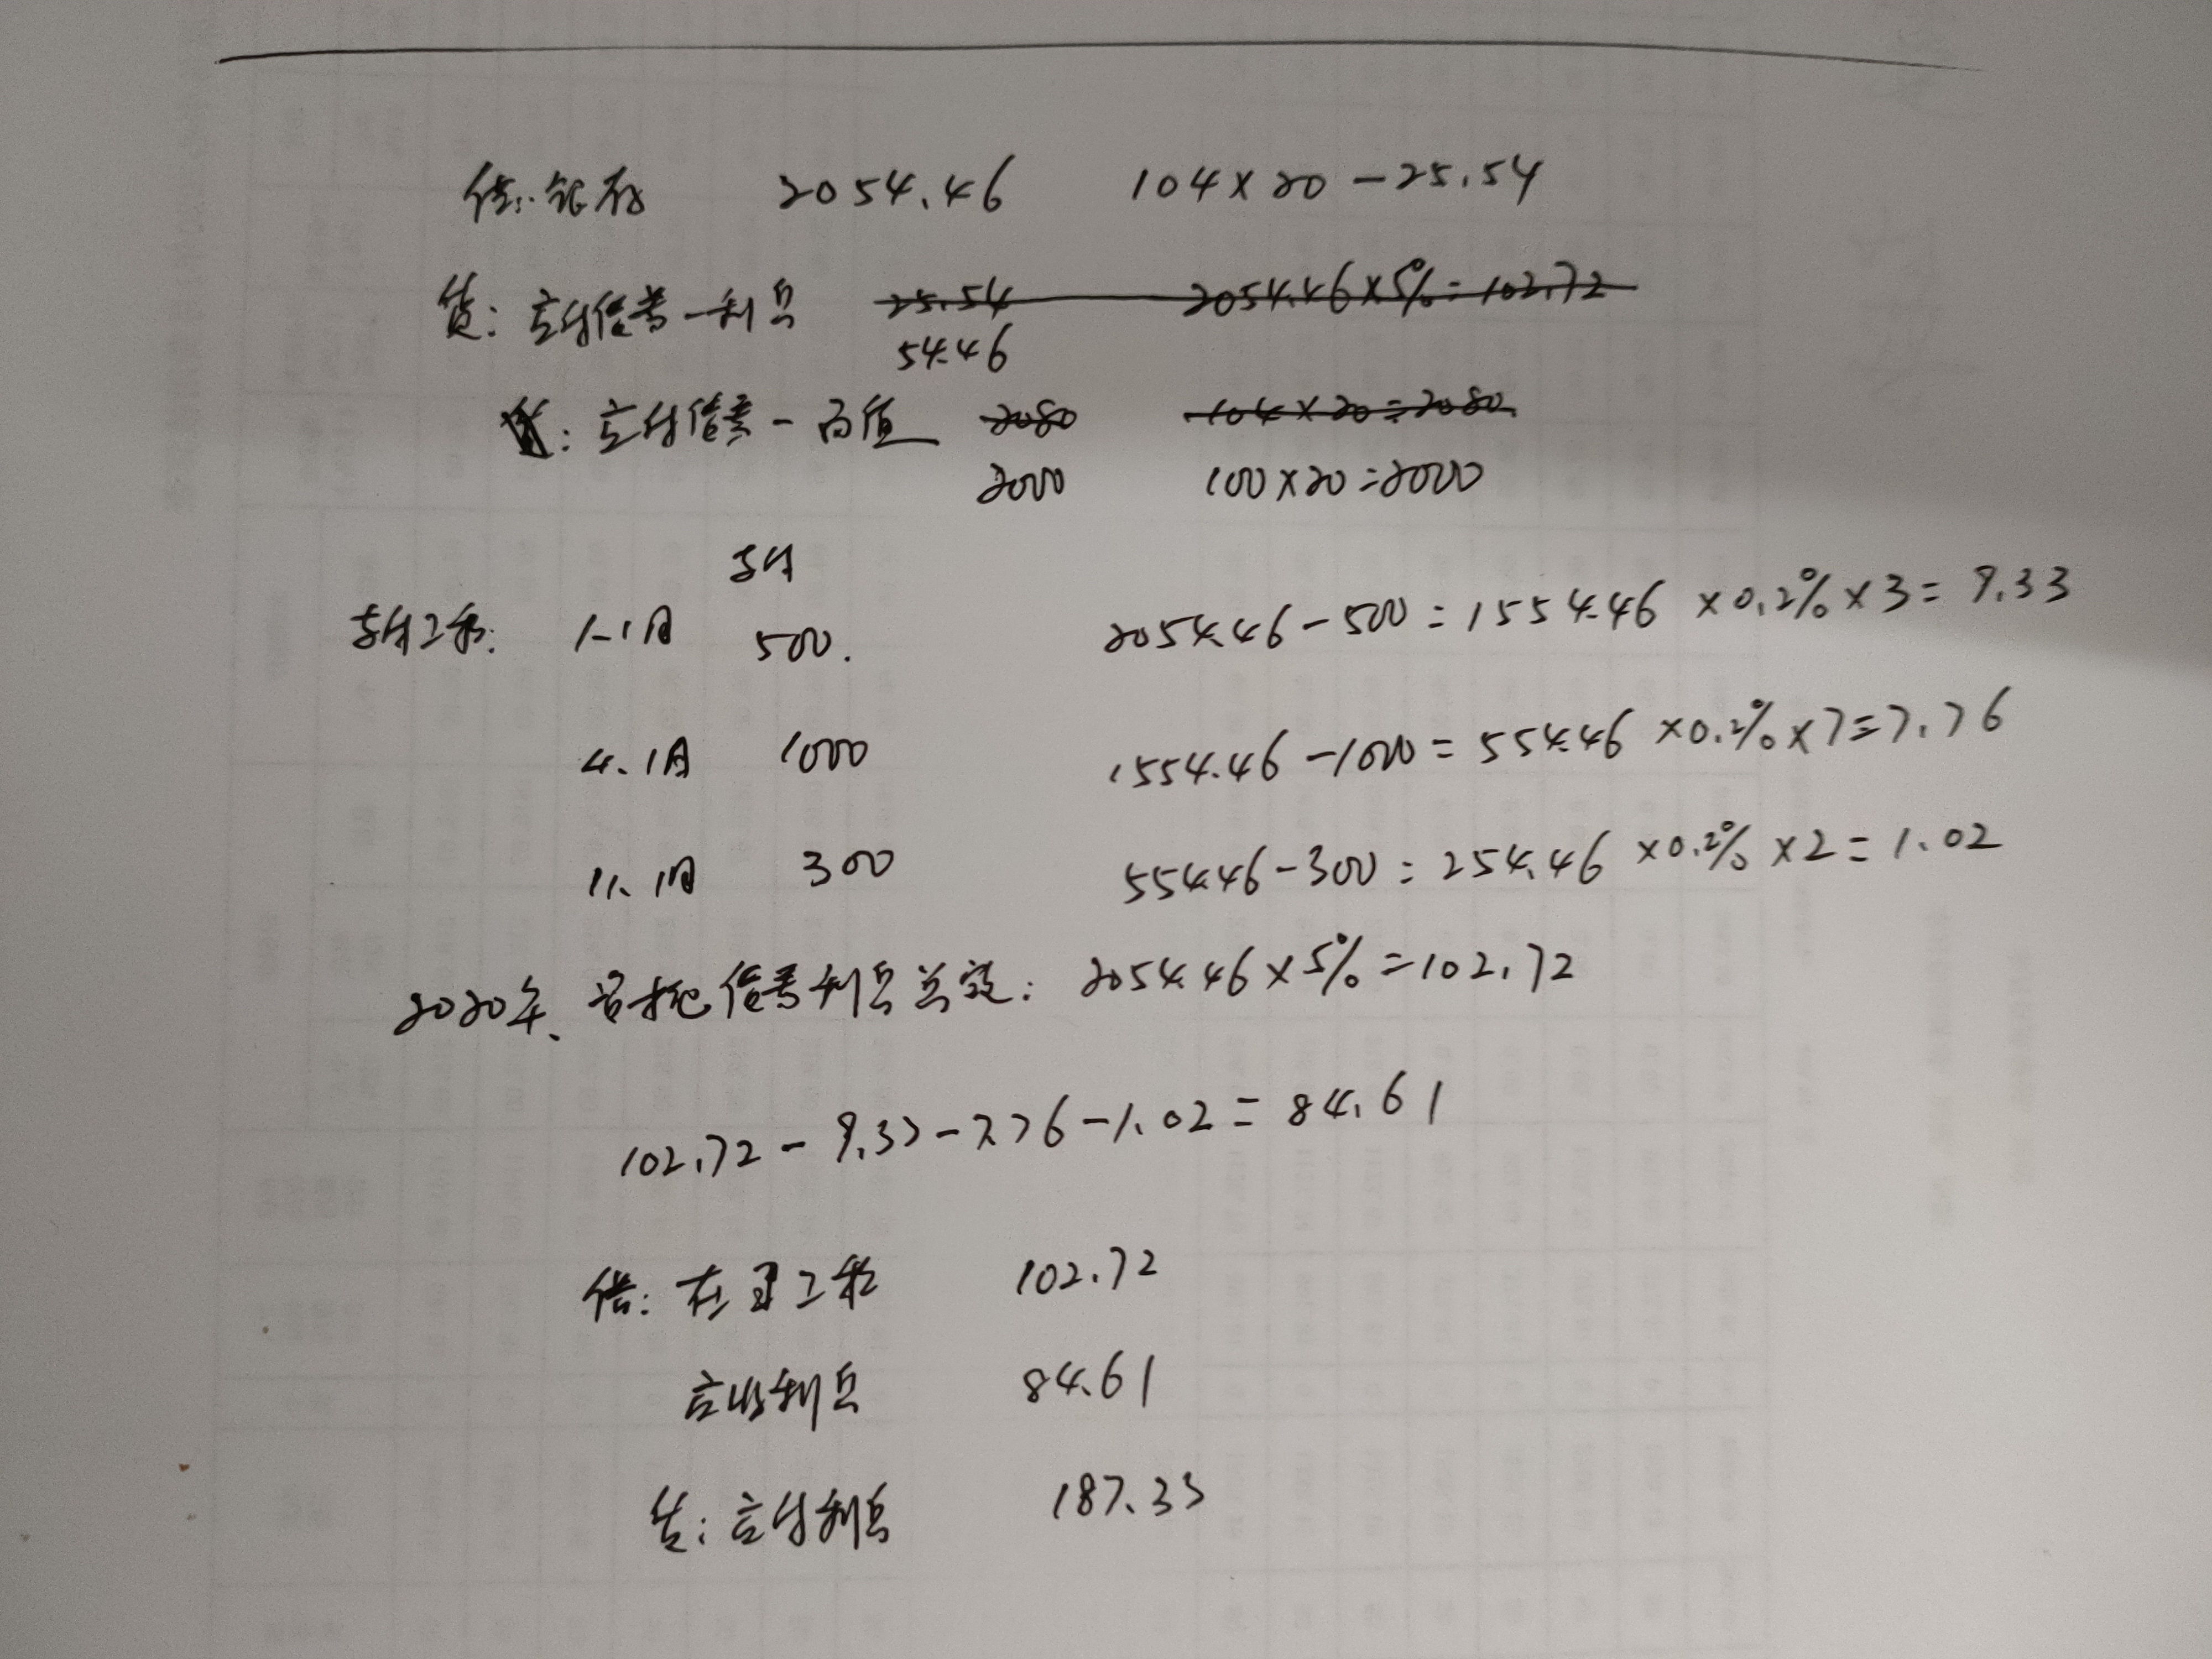 借:银存 2054.46 104×20-25.54
贷:应付债券-利息 25.54 2054.46×5%=102.72
54.46
贷:应付债券-面值 2080 104×20=2080
2000 100×20=2000
支付
支付工程: 1.1日 500. 2054.46-500=1554.46×0.2%×3=9.33
4.1日 1000 1554.46-1000=554.46×0.2%×7=7.76
11.1日 300 554.46-300=254.46×0.2%×2=1.02
2020年、 债券利息总额: 2054.46×5%=102.72
102.72-9.33-7.76-1.02=84.61
借:在建工程 102.72
应收利息 84.61
贷:应付利息 187.33